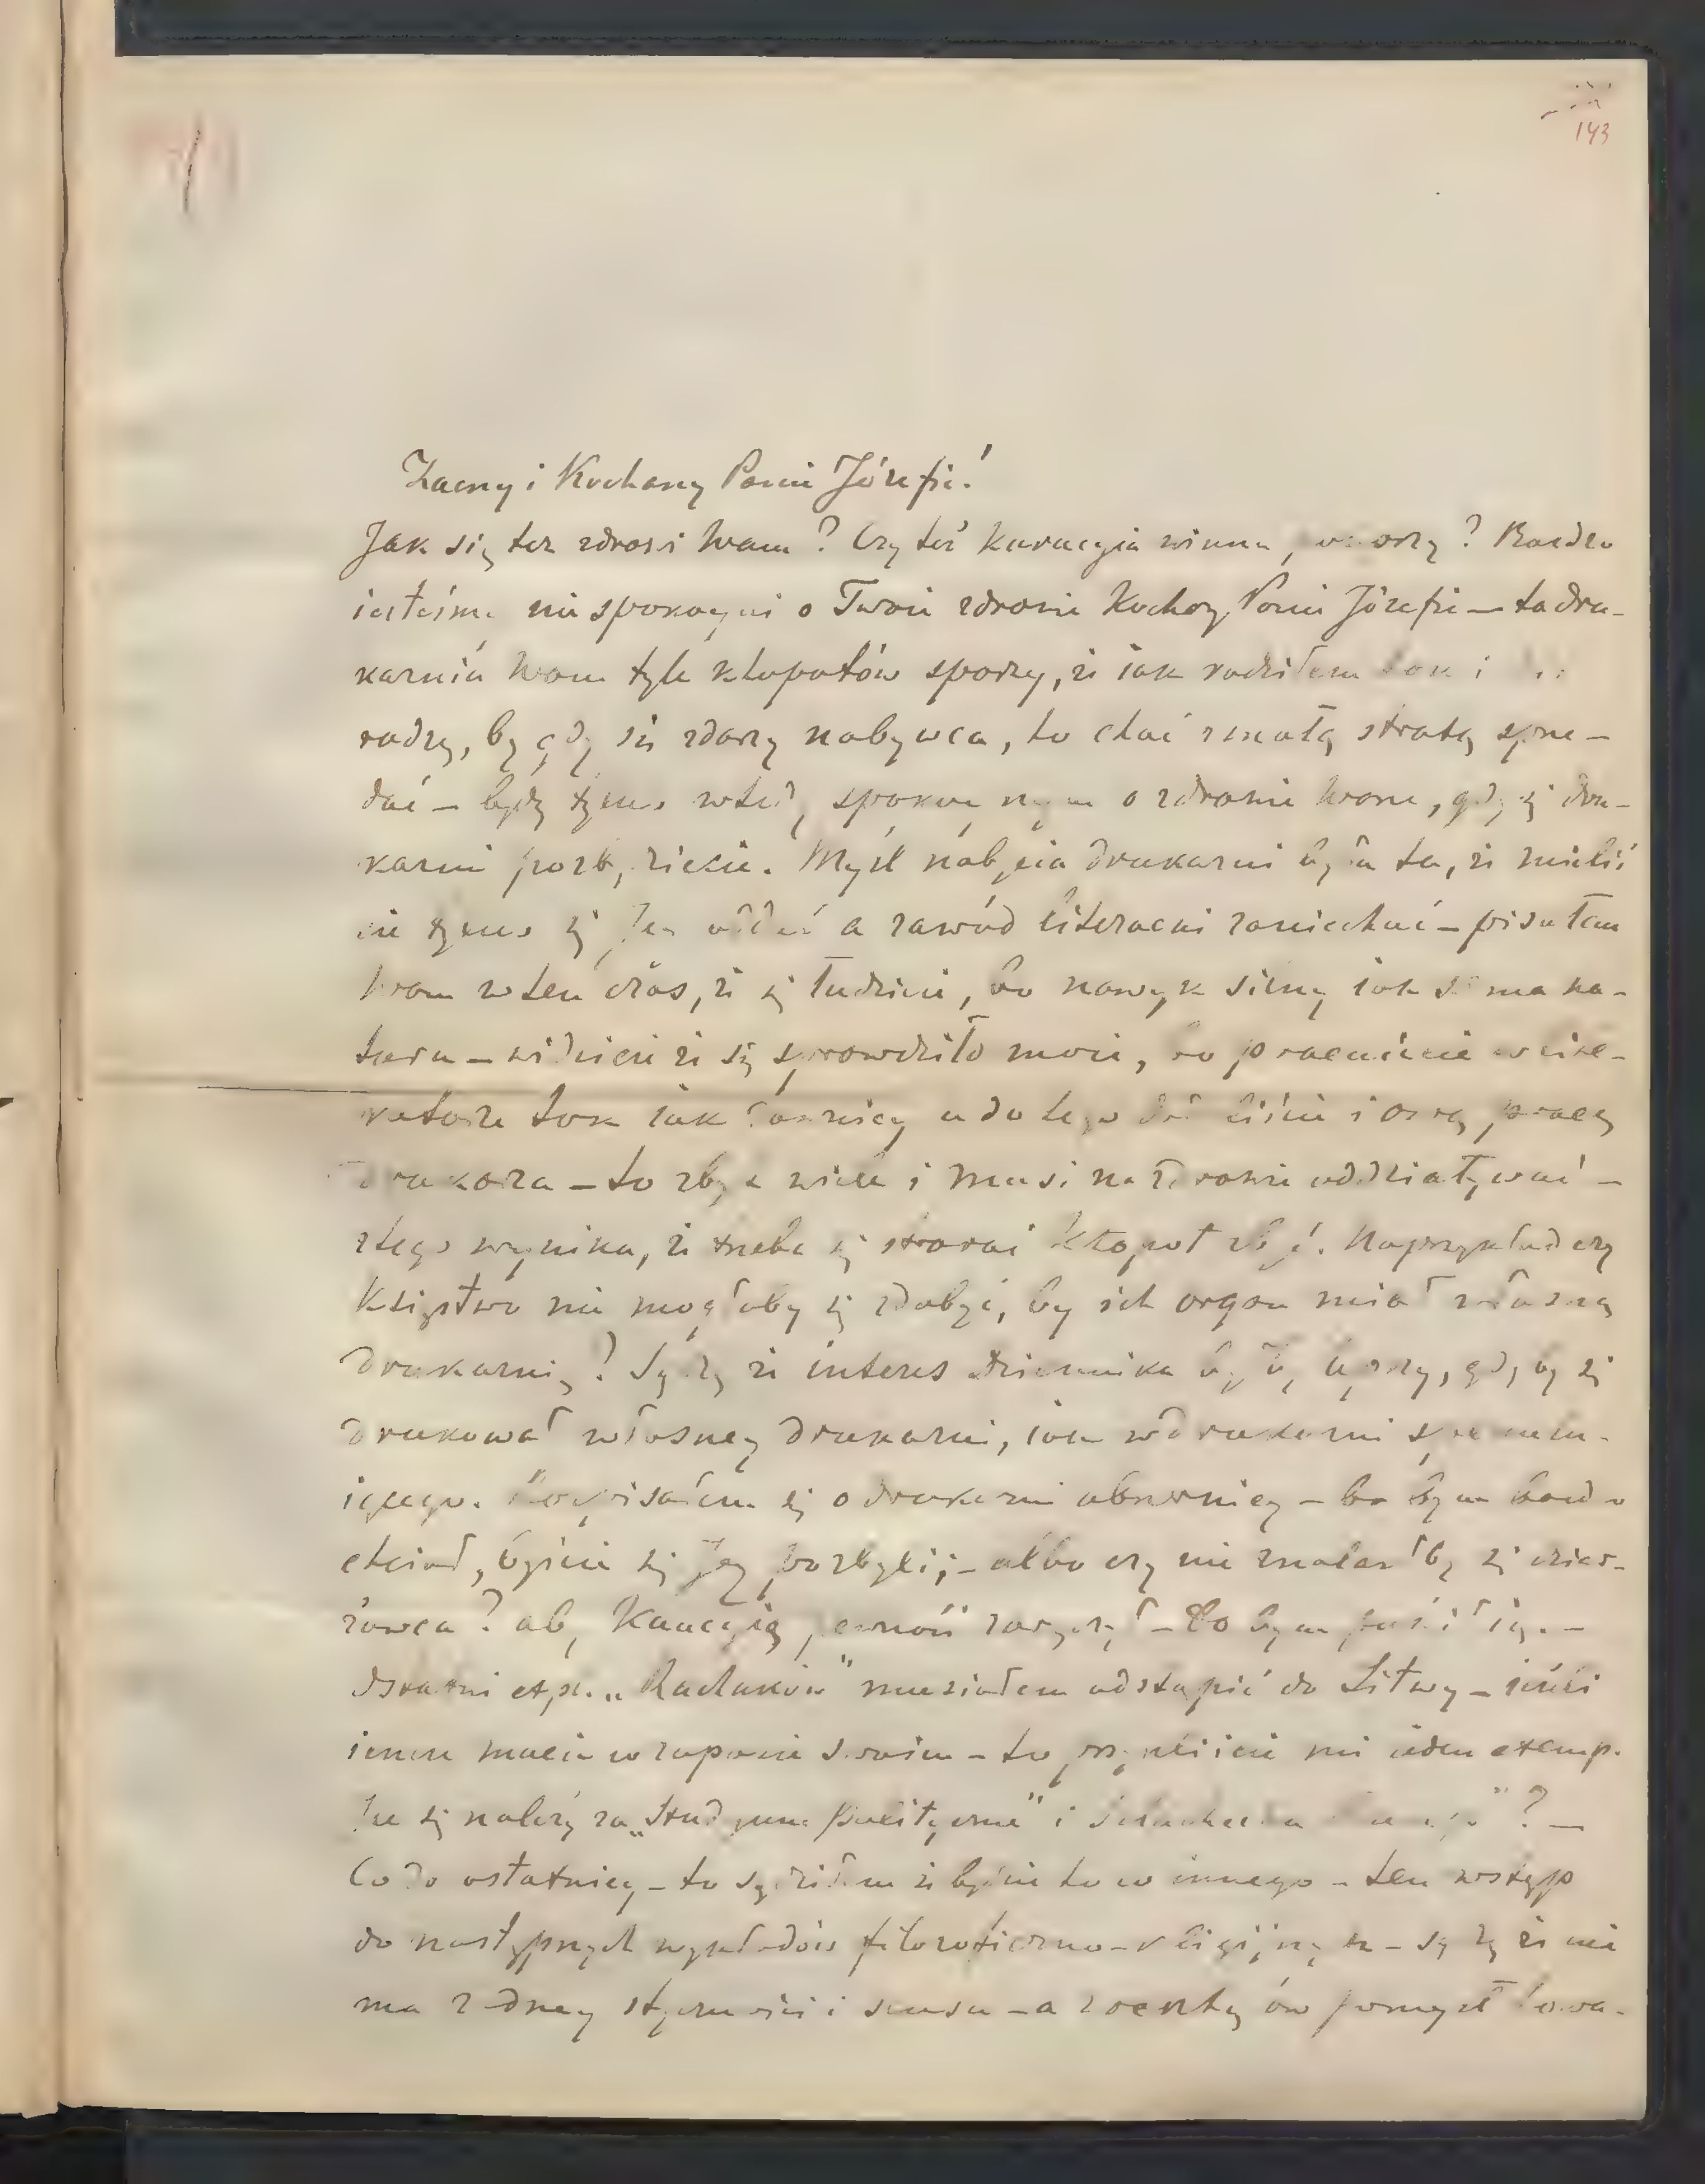 143
Zacny i Kochany Panie Józefie!
Jak się tez zdrowi Wam? Czy też kuracyia winna, ? Bardzo
iesteśmy nie spokoyni o Twoie zdrowie Kochany Panie Józefie – ta dru-
karnia Wam tyle kłopotów sparzy, że iak radziłem tak i
radzę, by gdy się zdarzy nabywca, to choć z małą stratą sprze-
dać – będę wtedy spokoynym o zdrowie Wasze, gdy się dru-
karni pozbędziecie. Myśl nabycia drukarni była ta, że mieliś
cie się iey oddać a zawód literacki zaniechać – pisałem
Wam w ten czas, że się łudzicie, bo nawyk silny iak sama na-
tura – widzicie że się sprawdziło moie, bo pracuiecie w lite-
raturze tak iak dawniey a do tego i pracę
drukarza – to zbyt wiele i musi na zdrowie oddziaływać –
z tego wynika, że trzeba się starać kłopot zbyć. Naprzykład czy
Księstwo nie mogłoby się zdobyć, by ich organ miał własną
drukarnię? Sądzę że interes dziennika byłby lepszy, gdyby się
drukował własney drukarni, iak w drukarni
iącego. Rozpisałem się o drukarni obszerniey – bo bym bardzo
chciał, byście się iey pozbyli; – albo czy nie znalazłby się dzier-
żawca? aby kaucyią pewność zaręczył – to bym puścił ią. –
Ostatni exp. „Rachunków" musiałem odstąpić do Litwy – ieśli
ieszcze macie w zapasie swoim – to przyszliicie mi ieden exemp.
Ile się należy za „Studyum Polityczne" i " ? –
Co do ostatniey – to sądziłem że będzie to co innego – ten wstęp
do następnych wykładów filozoficzno-religiynych – sądzę że nie
ma żadney styczności i sensu – a zresztą ów pomysł